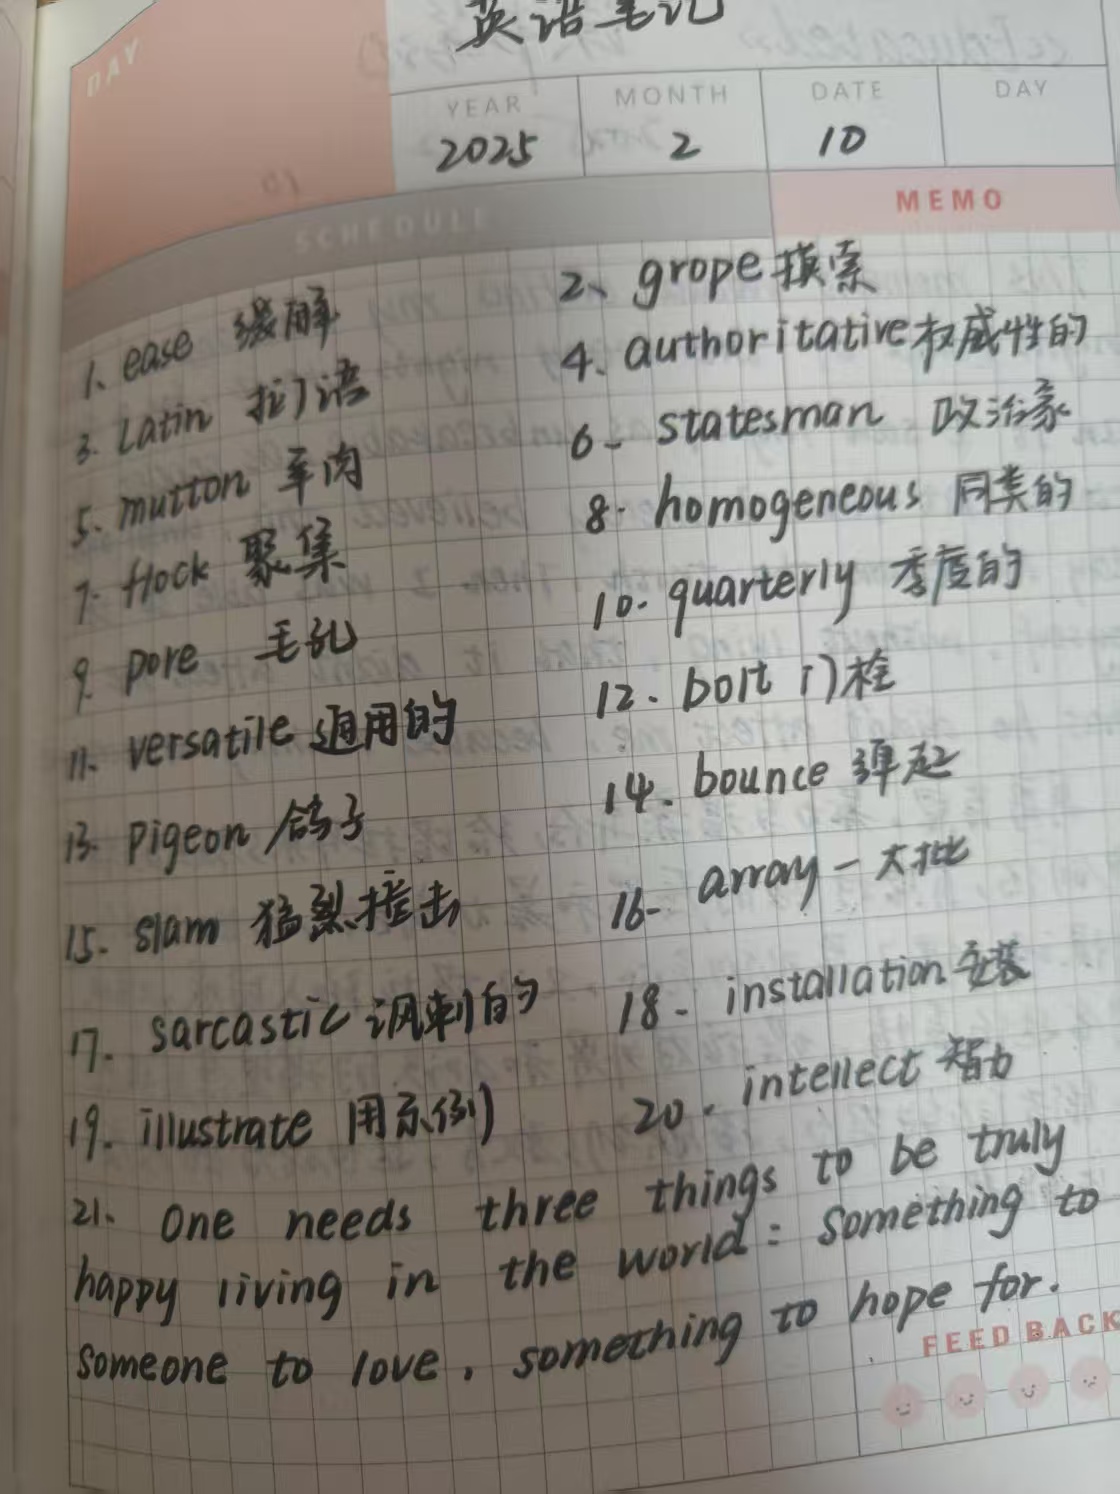 英语笔记
DAY
YEAR MONTH DATE DAY
2025 2 10
SCHEDULE MEMO
1、ease 缓解 2、grope 摸索
3. Latin 拉丁语 4. authoritative 权威性的
5. mutton 羊肉 6- statesman 政治家
7. flock 聚集 8. homogeneous 同类的
9. pore 毛孔 10. quarterly 季度的
11. versatile 通用的 12. bolt 门栓
13. pigeon 鸽子 14. bounce 弹起
15. slam 猛烈撞击 16- array 一大批
17. sarcastic 讽刺的 18- installation 安装
19. illustrate 用示例 20. intellect 智力
21. One needs three things to be truly
happy living in the world: Something to
someone to love, something to hope for.
FEED BACK